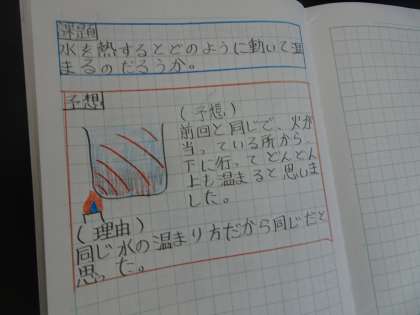 課題
水を熱するとどのように動いて温
まるのだろうか。
予想
(予想)
前回と同じで、火が
当っている所から、
下に行ってどんどん
上も温まると思いま
した。
(理由)
同じ水の温まり方だから同じだと
思った。